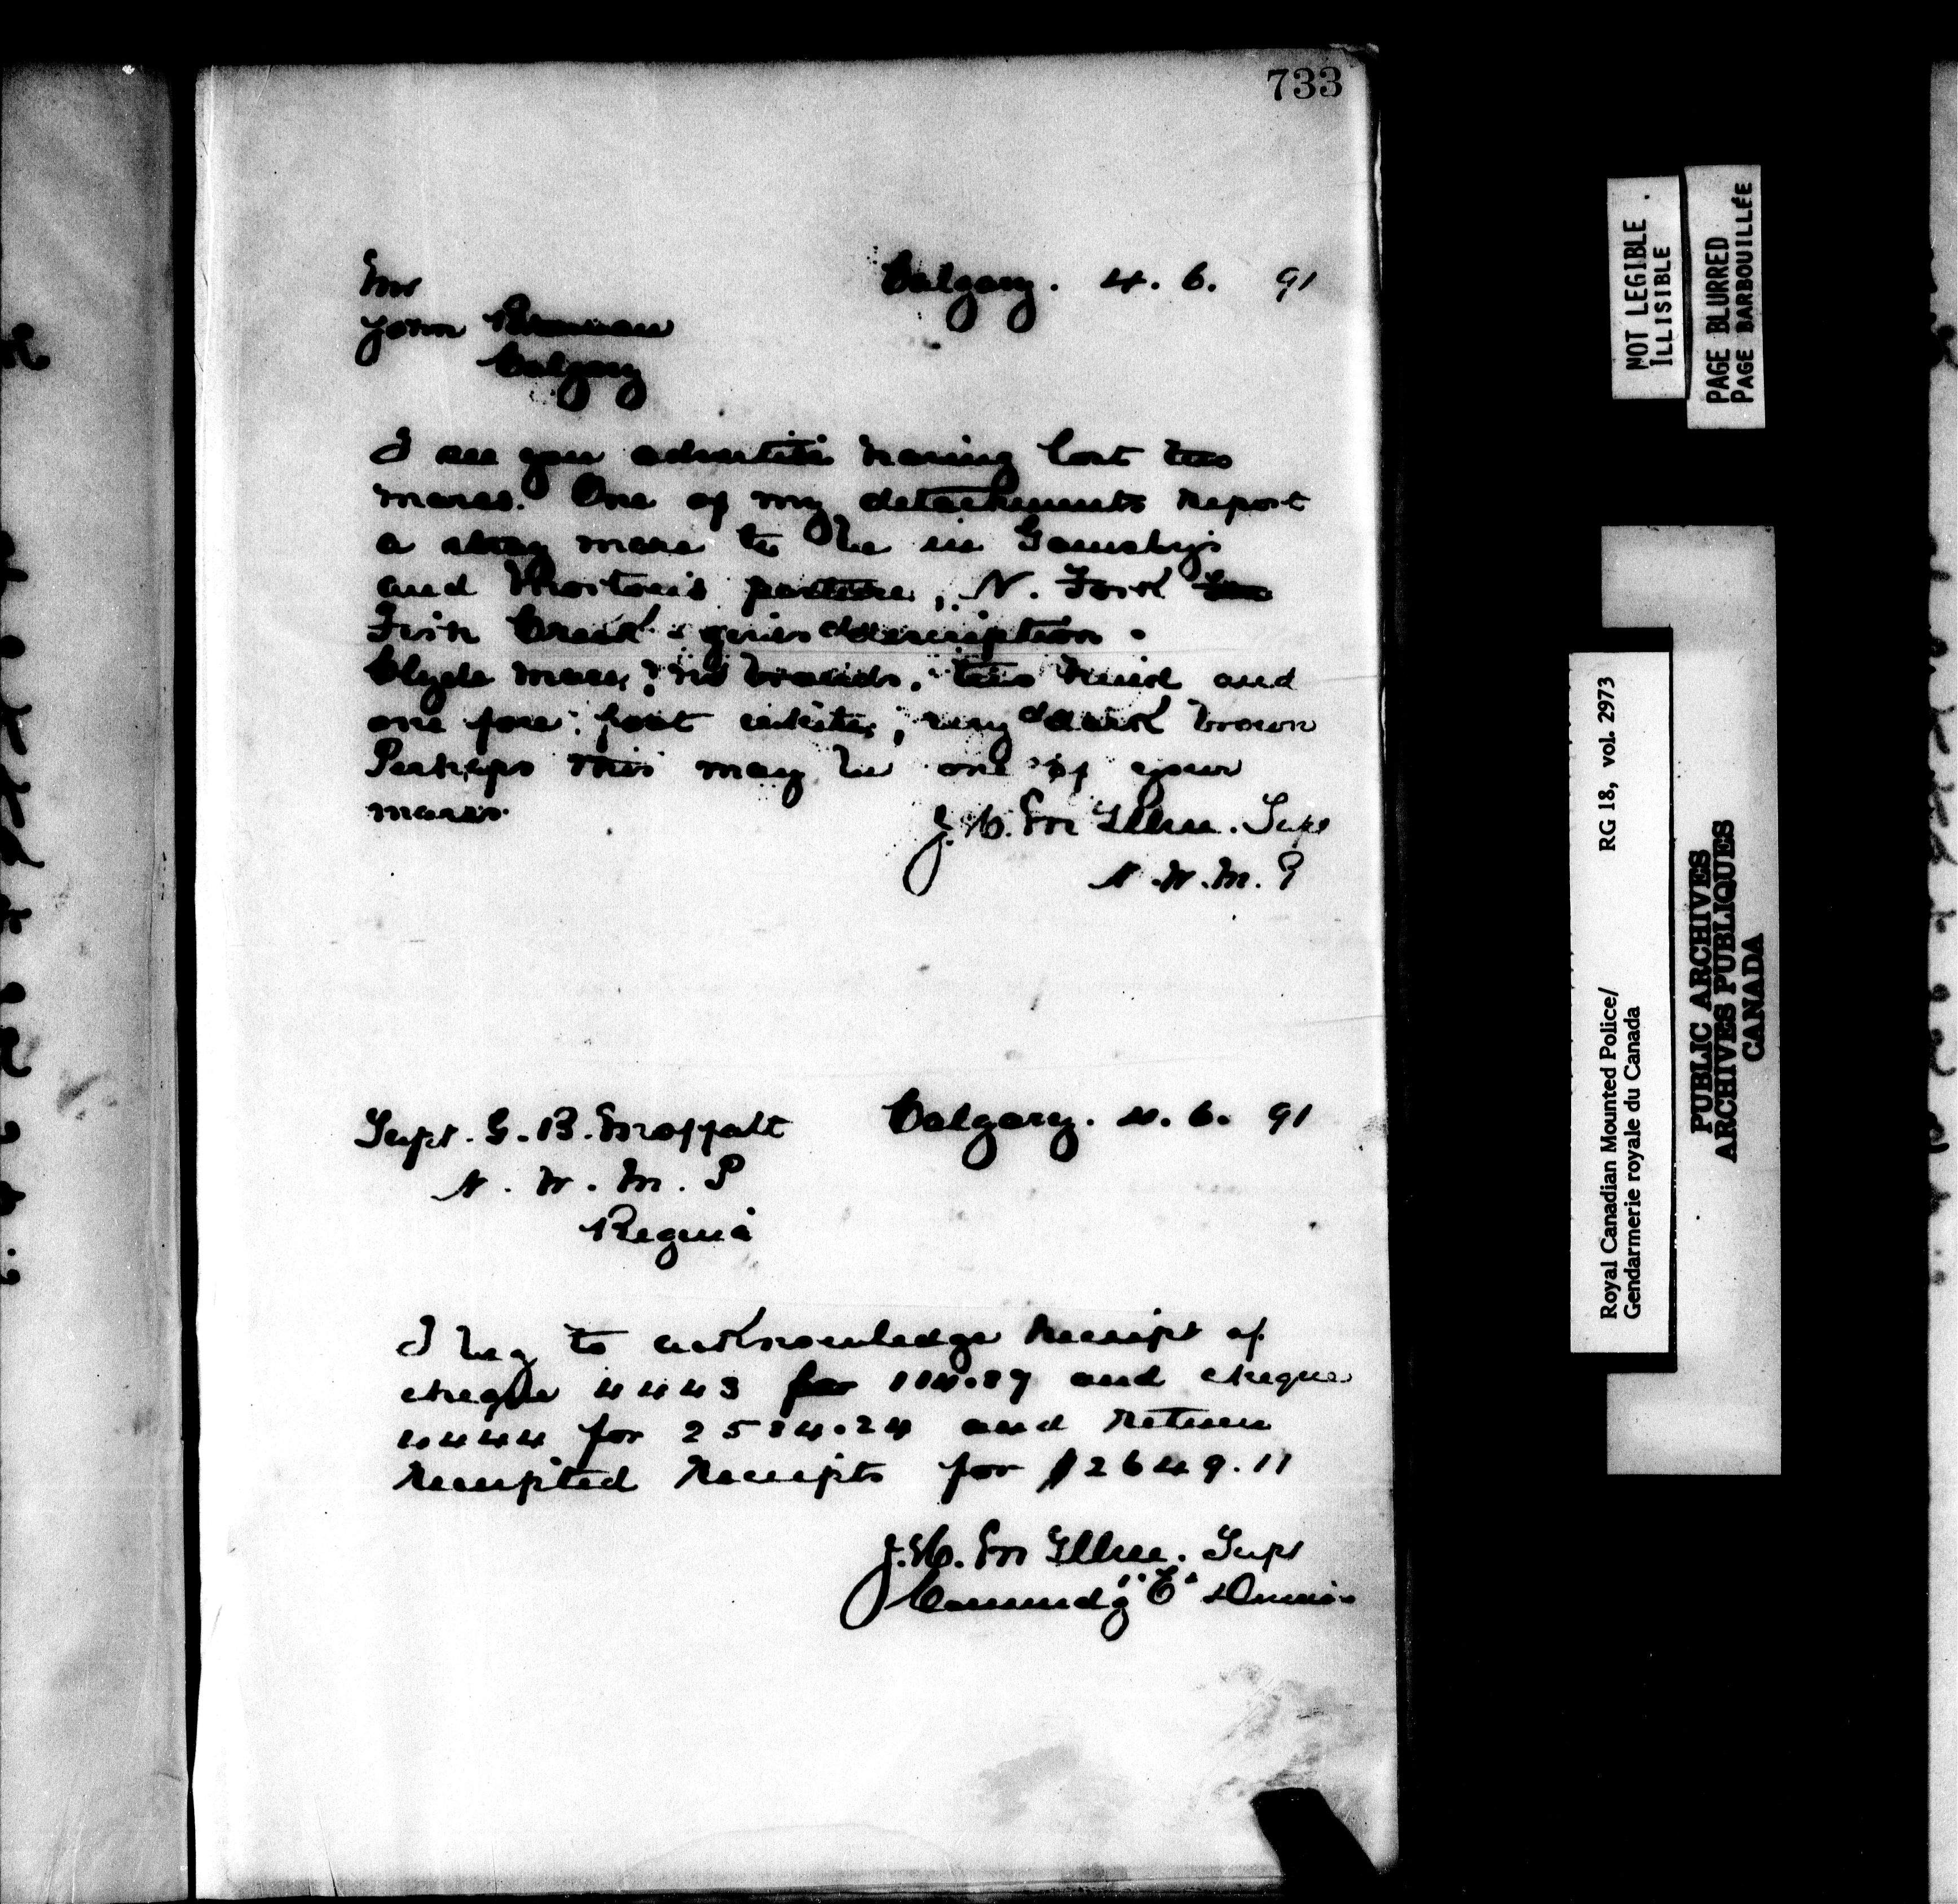 733
Mr
Calgary. 4. 6. 91
John Brennan
Calgary
I see you advertise having lost two
mares. One of my detachments report
a stray mare to be in
and Morton's pasture, N. Fork
Fish Creek - given description.
Clyde mare, no brands, two hind and
one fore foot white, very dark brown
Perhaps this may be one of your
mares.
J. H. McIllree. Supt
N. W. M. P
Supt. G. B. Moffatt
Calgary. 4. 6. 91
N. W. M. P
Regina
I beg to acknowledge receipt of
cheque 4443 for and cheque
4444 for and return
receipted receipts for $2649.11
J. H. McIllree. Supt
Commndg "E" Division
NOT LEGIBLE
ILLISIBLE
PAGE BLURRED
PAGE BARBOUILLÉE
Royal Canadian Mounted Police/
Gendarmerie royale du Canada
RG 18, vol. 2973
PUBLIC ARCHIVES
ARCHIVES PUBLIQUES
CANADA